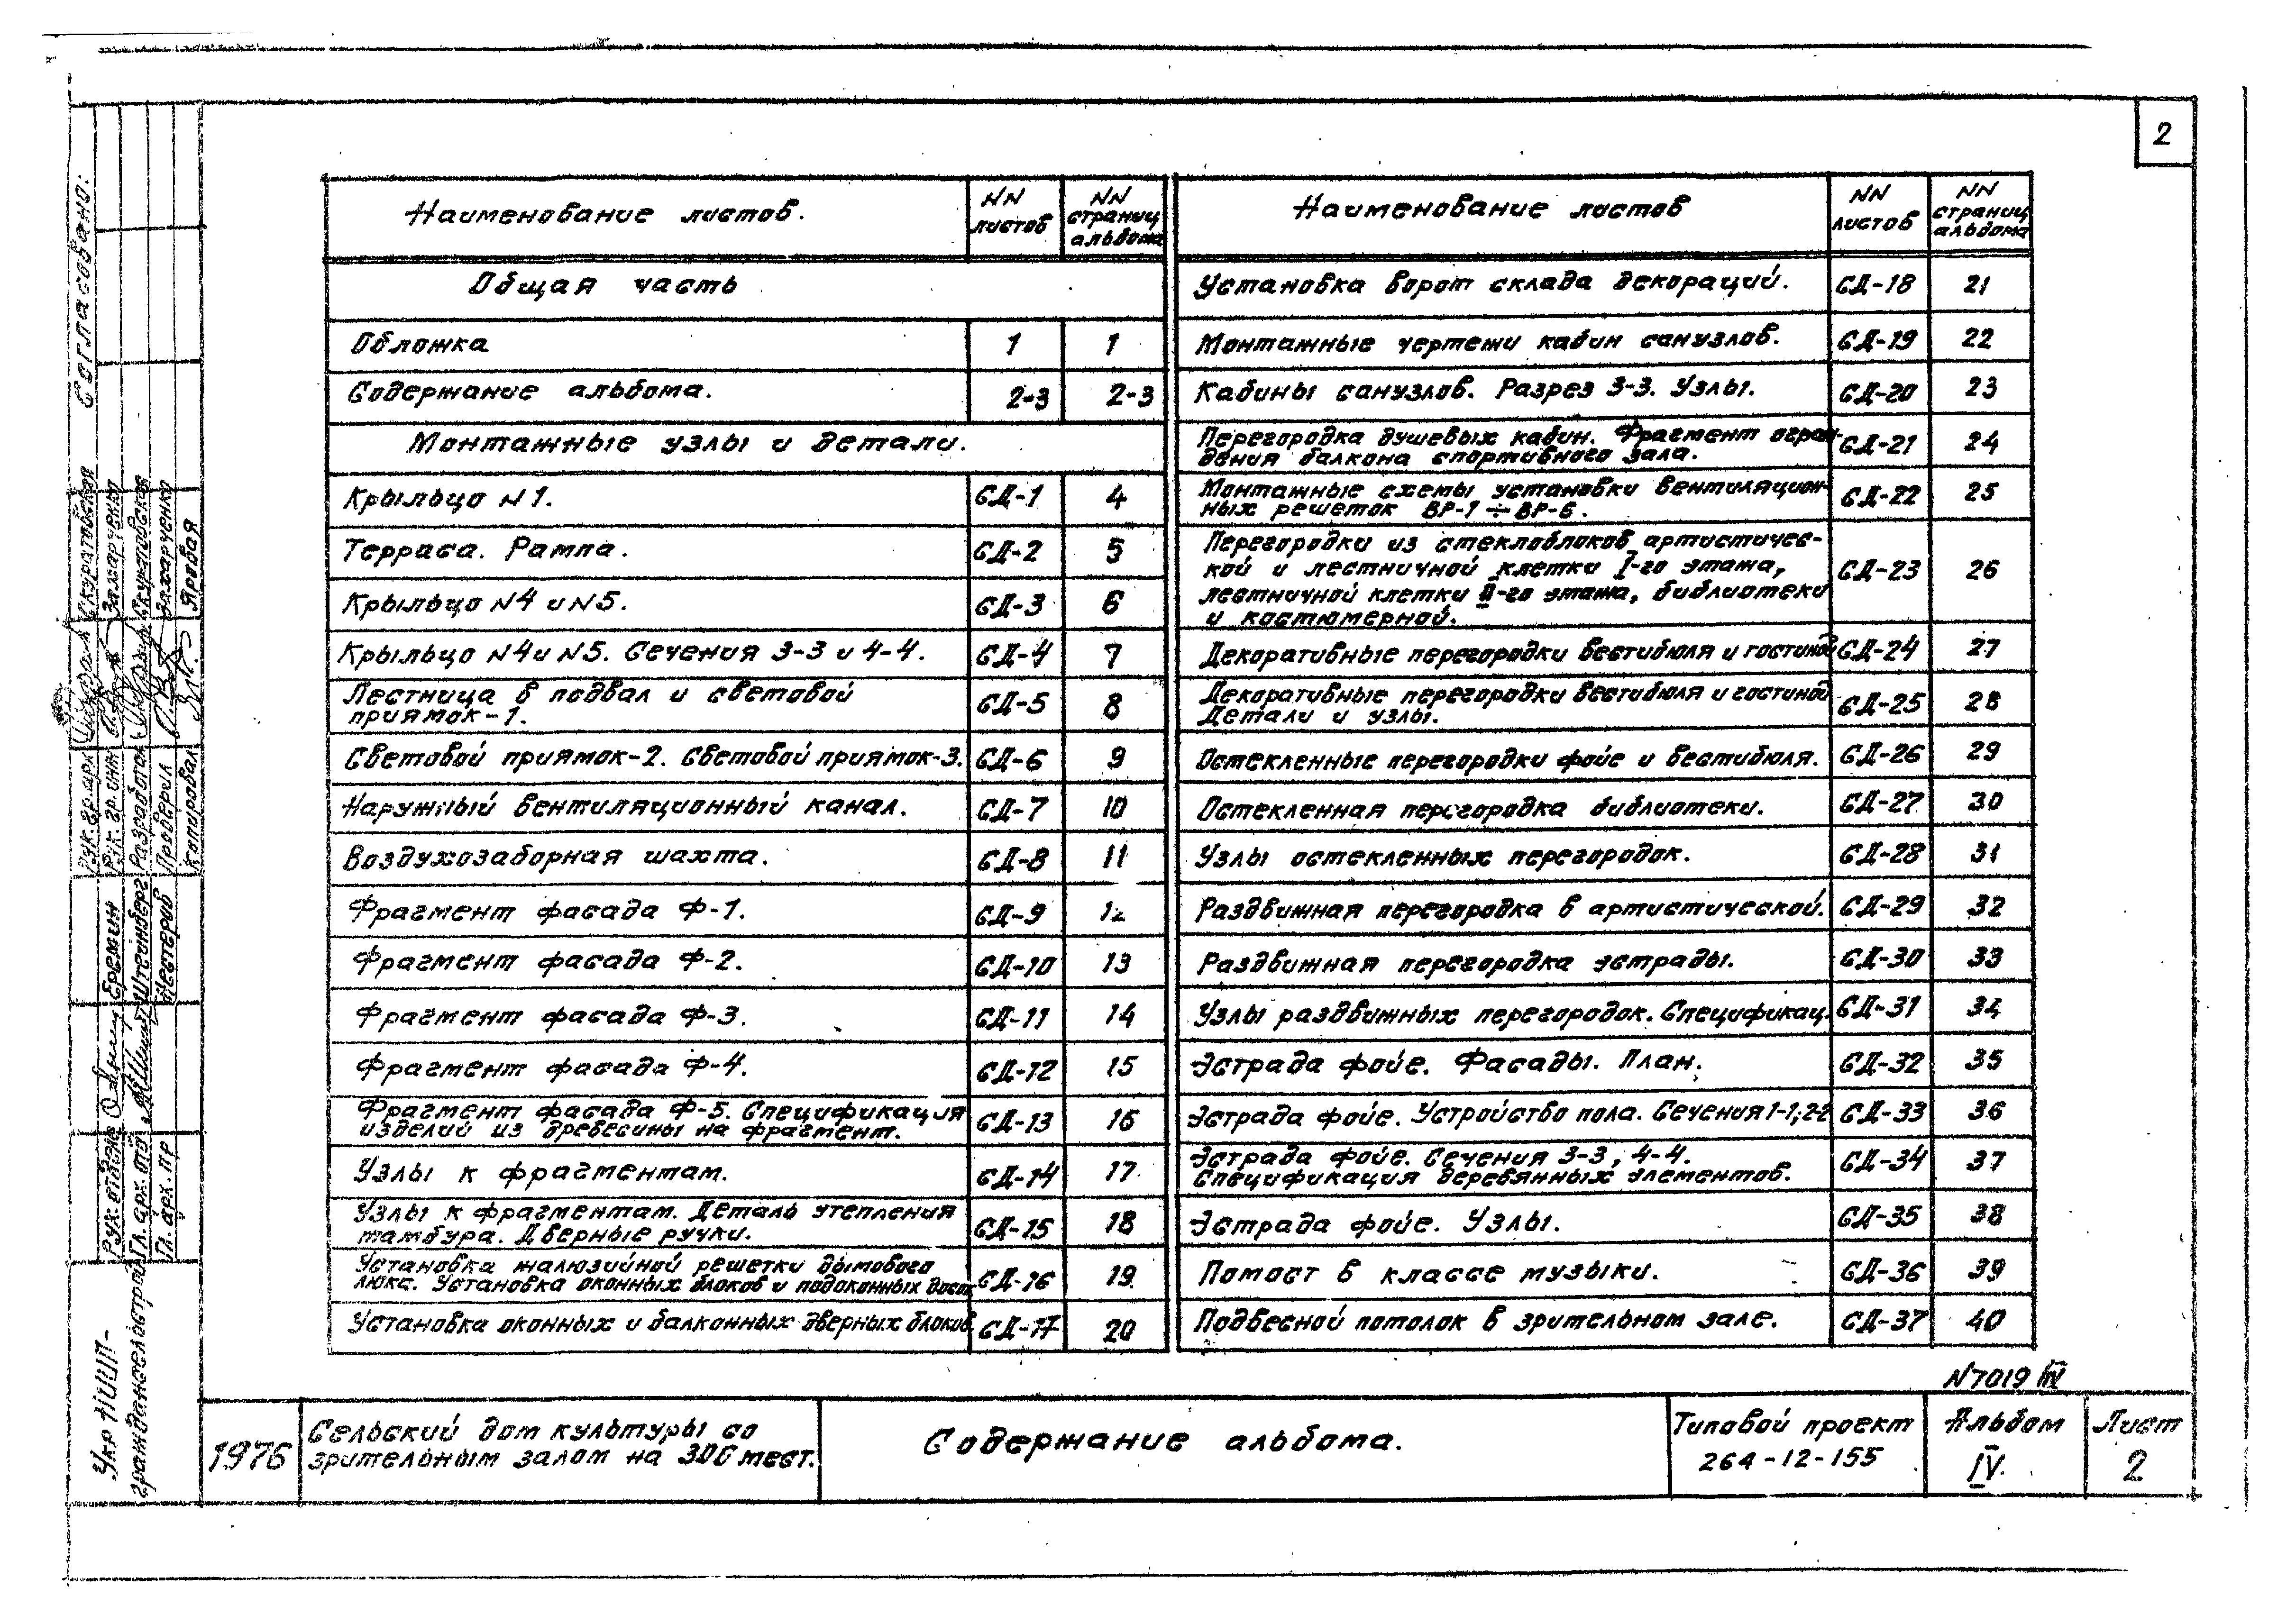 2
Наименование листов.
NN листов
NN страниц альбома
Общая часть
Обложка 1 1
Содержание альбома. 2-3 2-3
Монтажные узлы и детали.
Крыльцо N1. СД-1 4
Терраса. Рампа. СД-2 5
Крыльцо N4 и N5. СД-3 6
Крыльцо N4 и N5. Сечения 3-3 и 4-4. СД-4 7
Лестница в подвал и световой
приямок-1. СД-5 8
Световой приямок-2. Световой приямок-3. СД-6 9
Наружный вентиляционный канал. СД-7 10
Воздухозаборная шахта. СД-8 11
Фрагмент фасада Ф-1. СД-9 12
Фрагмент фасада Ф-2. СД-10 13
Фрагмент фасада Ф-3. СД-11 14
Фрагмент фасада Ф-4. СД-12 15
Фрагмент фасада Ф-5. Спецификация
изделий из древесины на фрагмент. СД-13 16
Узлы к фрагментам. СД-14 17
Узлы к фрагментам. Деталь утепления
тамбура. Дверные ручки. СД-15 18
Установка жалюзийной решетки дымового
люка. Установка оконных блоков и подоконных досок СД-16 19
Установка оконных и балконных дверных блоков СД-17 20
Наименование листов
NN листов
NN страниц альбома
Установка ворот склада декораций. СД-18 21
Монтажные чертежи кабин санузлов. СД-19 22
Кабины санузлов. Разрез 3-3. Узлы. СД-20 23
Перегородка душевых кабин. Фрагмент огран-
дения балкона спортивного зала. СД-21 24
Монтажные схемы установки вентиляцион-
ных решеток ВР-1 ÷ ВР-6. СД-22 25
Перегородки из стеклоблоков артистичес-
кой и лестничной клетки I-го этажа,
лестничной клетки II-го этажа, библиотеки
и костюмерной. СД-23 26
Декоративные перегородки вестибюля и гостиной СД-24 27
Декоративные перегородки вестибюля и гостиной
Детали и узлы. СД-25 28
Остекленные перегородки фойе и вестибюля. СД-26 29
Остекленная перегородка библиотеки. СД-27 30
Узлы остекленных перегородок. СД-28 31
Раздвижная перегородка в артистической. СД-29 32
Раздвижная перегородка эстрады. СД-30 33
Узлы раздвижных перегородок. Спецификац. СД-31 34
Эстрада фойе. Фасады. План. СД-32 35
Эстрада фойе. Устройство пола. Сечения 1-1; 2-2 СД-33 36
Эстрада фойе. Сечения 3-3, 4-4.
Спецификация деревянных элементов. СД-34 37
Эстрада фойе. Узлы. СД-35 38
Помост в классе музыки. СД-36 39
Подвесной потолок в зрительном зале. СД-37 40
N7019 IV
1976
Сельский дом культуры со
зрительным залом на 300 мест.
Содержание альбома.
Типовой проект
264-12-155
Альбом
IV.
Лист
2
Согласовано:
Рук. гр. арх. Скуратовская
Рук. гр. инж. Захарченко
Разработал Скуратовская
Проверил Захарченко
Копировал Яровая
Рук. отделен. Еремин
Гл. арх. отд. Штейнберг
Гл. арх. пр Нестеров
Укр НИИП-
гражданселострой